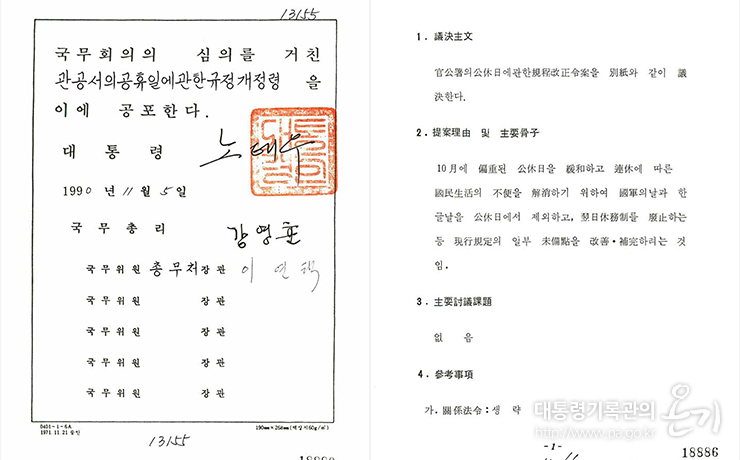 13155
국무회의의 심의를 거친
관공서의공휴일에관한규정개정령 을
이에 공포한다.
대통령 노태우
1990 년 11 월 5 일
국무총리 강영훈
국무위원 총무처장관 이연택
국무위원 장관
국무위원 장관
국무위원 장관
국무위원 장관
0401-1-6A
1971.11.21 승인
190mm×268mm(백상지60g/㎡)
13155
1. 議決主文
官公署의公休日에관한規程改正令案을 別紙와 같이 議
決한다.
2. 提案理由 및 主要骨子
10月에 偏重된 公休日을 緩和하고 連休에 따른
國民生活의 不便을 解消하기 위하여 國軍의날과 한
글날을 公休日에서 제외하고, 翌日休務制를 廢止하는
등 現行規定의 일부 未備點을 改善·補完하려는 것
임.
3. 主要討議課題
없 음
4. 參考事項
가. 關係法令 : 생 략
대통령기록관의 온기
http://www.pa.go.kr
-1-
18886